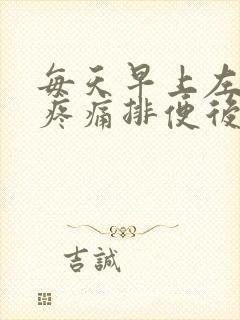 每天早上左
疼痛排便後
吉誠